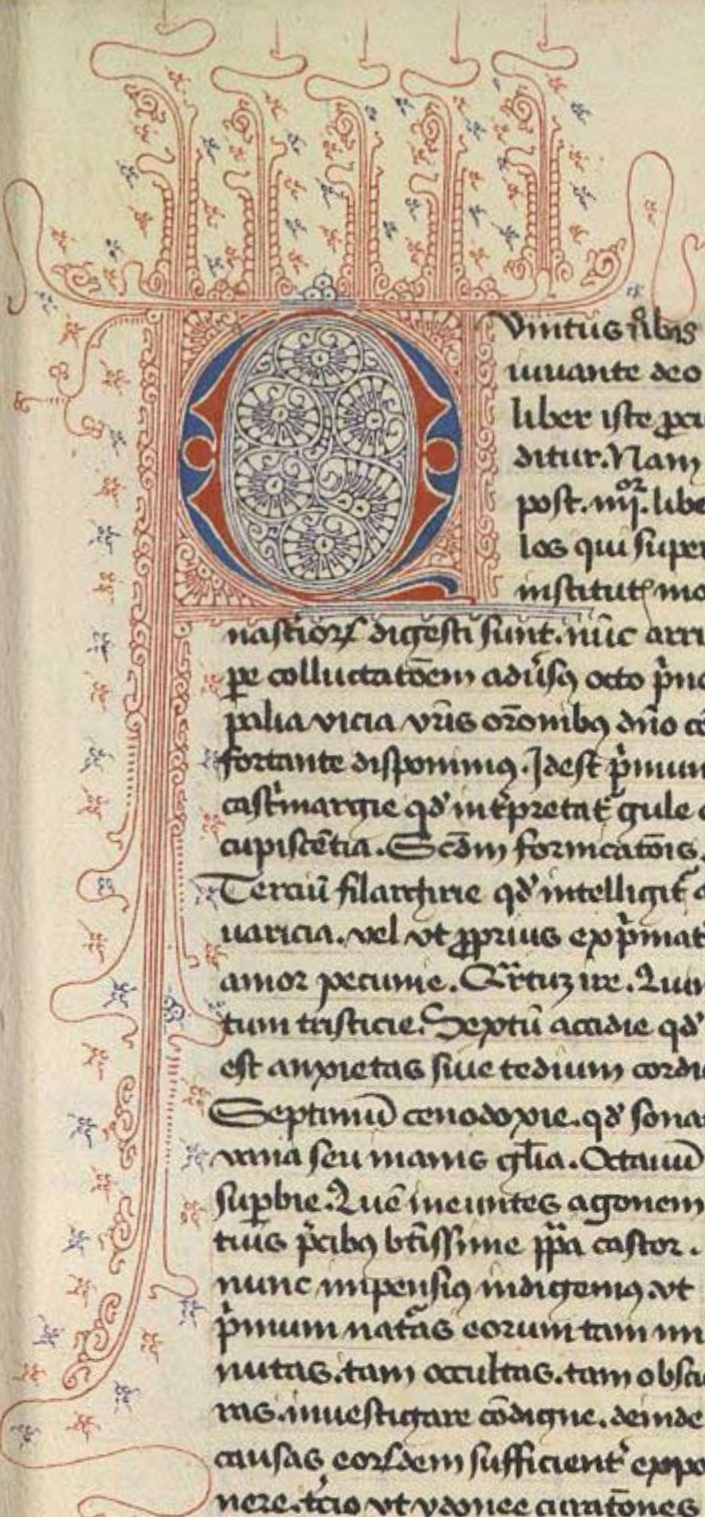 Quintus nobis
iuuante deo
liber iste pro
ditur. Nam
post. iiijor. libe
los qui super
institut mo
nastiorꝝ digesti sunt. nūc arri
pe colluctatōem adūsꝯ octo p̄nci
palia vicia vr̄is orōnibꝯ dn̄o cō
fortante disponimꝯ. Idest p̄mum
castrimargie qd̓ int̓pretat᷑ gule co
cupiscētia. Scd̄m fornicatōis.
Terciū filargirie qd̓ intelligit᷑ a
uaricia. vel vt ꝓprius exp̄mat᷑
amor pecunie. Qr̄tuꝫ ire. Quin
tum tristicie. Septū accidie qd̓
est anxietas siue tedium cordis
Septimū cenodoxie. qd̓ sonat
vana seu inanis gl̄ia. Octauū
suꝑbie. Quē ineuntes agonem
tuis p̄cibꝯ btīssime pp̄a castor.
nunc inpensiꝯ indigemꝯ. vt
p̄mum natās eorum tam mi
nutas. tam occultas. tam obscu
ras. inuestigare cōdigne. deinde
causas eorꝝdem sufficient᷑ expo
nere. t̓cio vt ydonee curatōnes